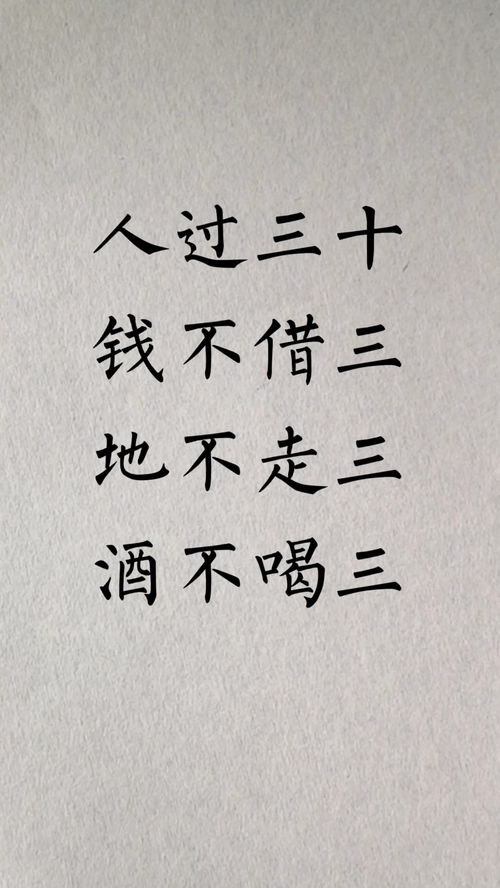 人过三十
钱不借三
地不走三
酒不喝三